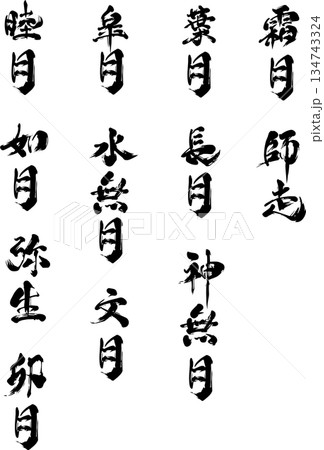 睦月
如月
弥生
卯月
皐月
水無月
文月
葉月
長月
神無月
霜月
師走
PIXTA
134743324